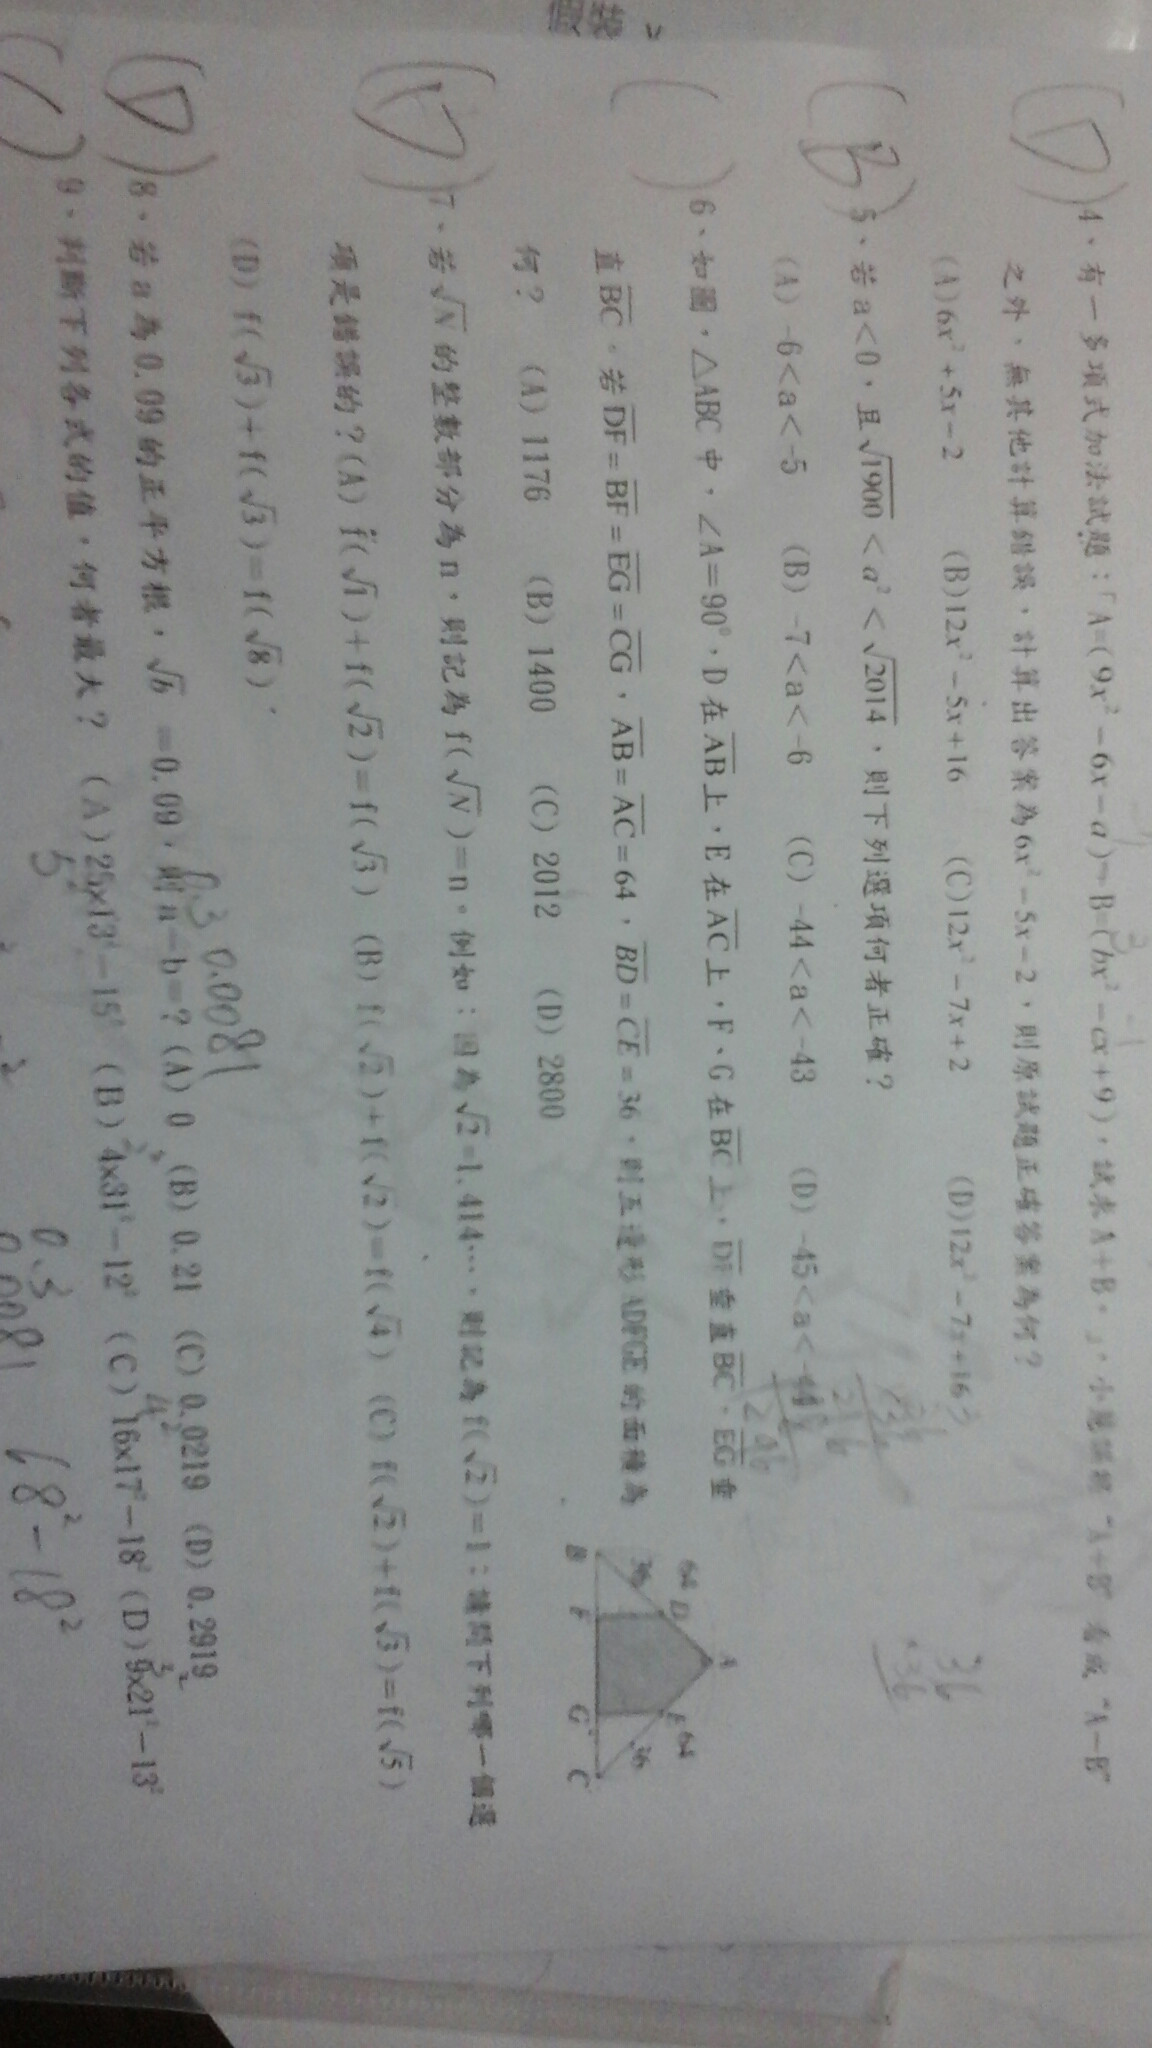 (D)4、有一多項式加法試題：「A=(9x²-6x-a)，B=(bx²-cx+9)，試求A+B。」，小明誤將“A+B”看成“A-B”
之外，無其他計算錯誤，計算出答案為6x²-5x-2，則原試題正確答案為何？
(A)6x²+5x-2 (B)12x²-5x+16 (C)12x²-7x+2 (D)12x²-7x+16
(B)5、若a<0，且√1900 < a² < √2014，則下列選項何者正確？
(A) -6<a<-5 (B) -7<a<-6 (C) -44<a<-43 (D) -45<a<-44
( )6、如圖，△ABC中，∠A=90°，D在AB上，E在AC上，F、G在BC上，DF垂直BC，EG垂
直BC。若DF=BF=EG=CG，AB=AC=64，BD=CE=36，則五邊形ADFGE的面積為
何？ (A) 1176 (B) 1400 (C) 2012 (D) 2800
A
64
64
D
E
36
36
B
F
G
C
(D)7、若√N的整數部分為n，則記為f(√N)=n。例如：因為√2=1.414…，則記為f(√2)=1；請問下列哪一個選
項是錯誤的？(A) f(√1)+f(√2)=f(√3) (B) f(√2)+f(√2)=f(√4) (C) f(√2)+f(√3)=f(√5)
(D) f(√3)+f(√3)=f(√8)
0.3 0.0081
(D)8、若a為0.09的正平方根，√b =0.09，則a-b=？(A) 0 (B) 0.21 (C) 0.0219 (D) 0.2919
( )9、判斷下列各式的值，何者最大？ (A) 25×13²-15² (B) 4×31²-12² (C) 16×17²-18² (D) 9×21²-13²
0.3
0.0081
68²-18²
36
36